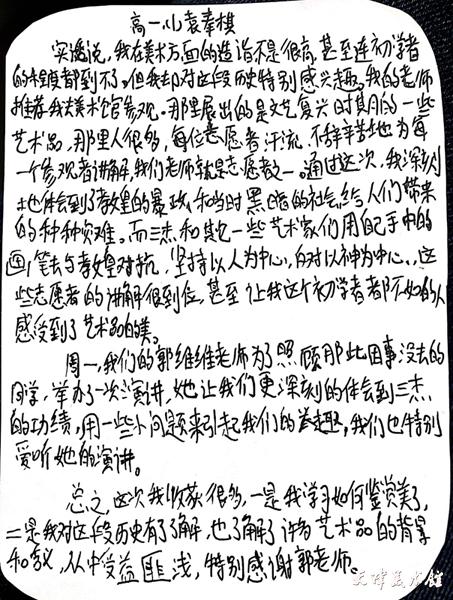 高一八袁奉棋
实话说，我在美术方面的造诣不是很高，甚至连初学者
的程度都到不了。但我却对这段历史特别感兴趣。我的老师
推荐我去美术馆参观。那里展出的是文艺复兴时期的一些
艺术品，那里人很多，每位志愿者汗流，不辞辛苦地为每
一个参观者讲解，我们老师就是志愿者之一。通过这次，我深刻
地体会到了教皇的暴政，和当时黑暗的社会给人们带来
的种种灾难。而三杰和其它一些艺术家们用自己手中的
画笔去与教皇对抗，坚持以人为中心，反对以神为中心，这
些志愿者的讲解很到位，甚至让我这个初学者都不如的人
感受到了艺术品的美。
周一，我们的郭维维老师为了照顾那些因事没去的
同学，举办了一次演讲，她让我们更深刻的体会到三杰
的功绩，用一些小问题来引起我们的兴趣，我们也特别
爱听她的演讲。
总之，这次我收获很多，一是我学习如何鉴赏美了，
二是我对这段历史有了了解，也了解了许多艺术品的背景
和含议，从中受益匪浅，特别感谢郭老师。
天津美术馆